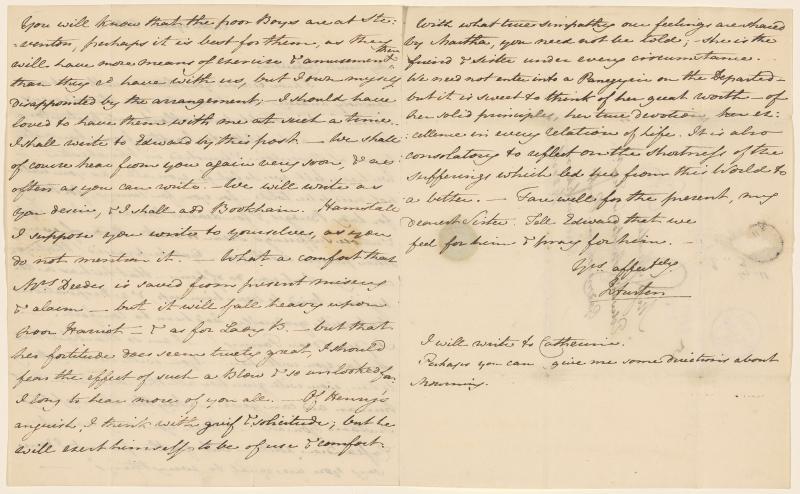 You will know that the poor Boys are at Ste:
:venton, perhaps it is best for them, as they
will have more means of exercise & amusement there
than they cd have with us, but I own myself
disappointed by the arrangement; – I should have
loved to have them with me at such a time.
I shall write to Edward by this post. – We shall
of course hear from you again very soon, & as
often as you can write. – We will write as
you desire, & I shall add Bookham. Hamstall
I suppose you write to yourselves, as you
do not mention it. – What a comfort that
Mrs Deedes is saved from present misery
& alarm – but it will fall heavy upon
poor Harriot – & as for Lady B. – but that
her fortitude does seem truely great, I should
fear the effect of such a Blow & so unlooked for.
I long to hear more of you all. – Of Henry's
anguish, I think with grief & solicitude; but he
will exert himself to be of use & comfort.
With what true simpathy our feelings are shared
by Martha, you need not be told; – she is the
friend & Sister under every circumstance.
We need not enter into a Panegyric on the Departed –
but it is sweet to think of her great worth – of
her solid principles, her true devotion, her ex:
:cellence in every relation of Life. It is also
consolatory to reflect on the shortness of the
sufferings which led her from this World to
a better. – Farewell for the present, my
dearest Sister. Tell Edward that we
feel for him & pray for him. –
Yrs affectely
J Austen
I will write to Catherine.
Perhaps you can give me some directions about
Mourning.